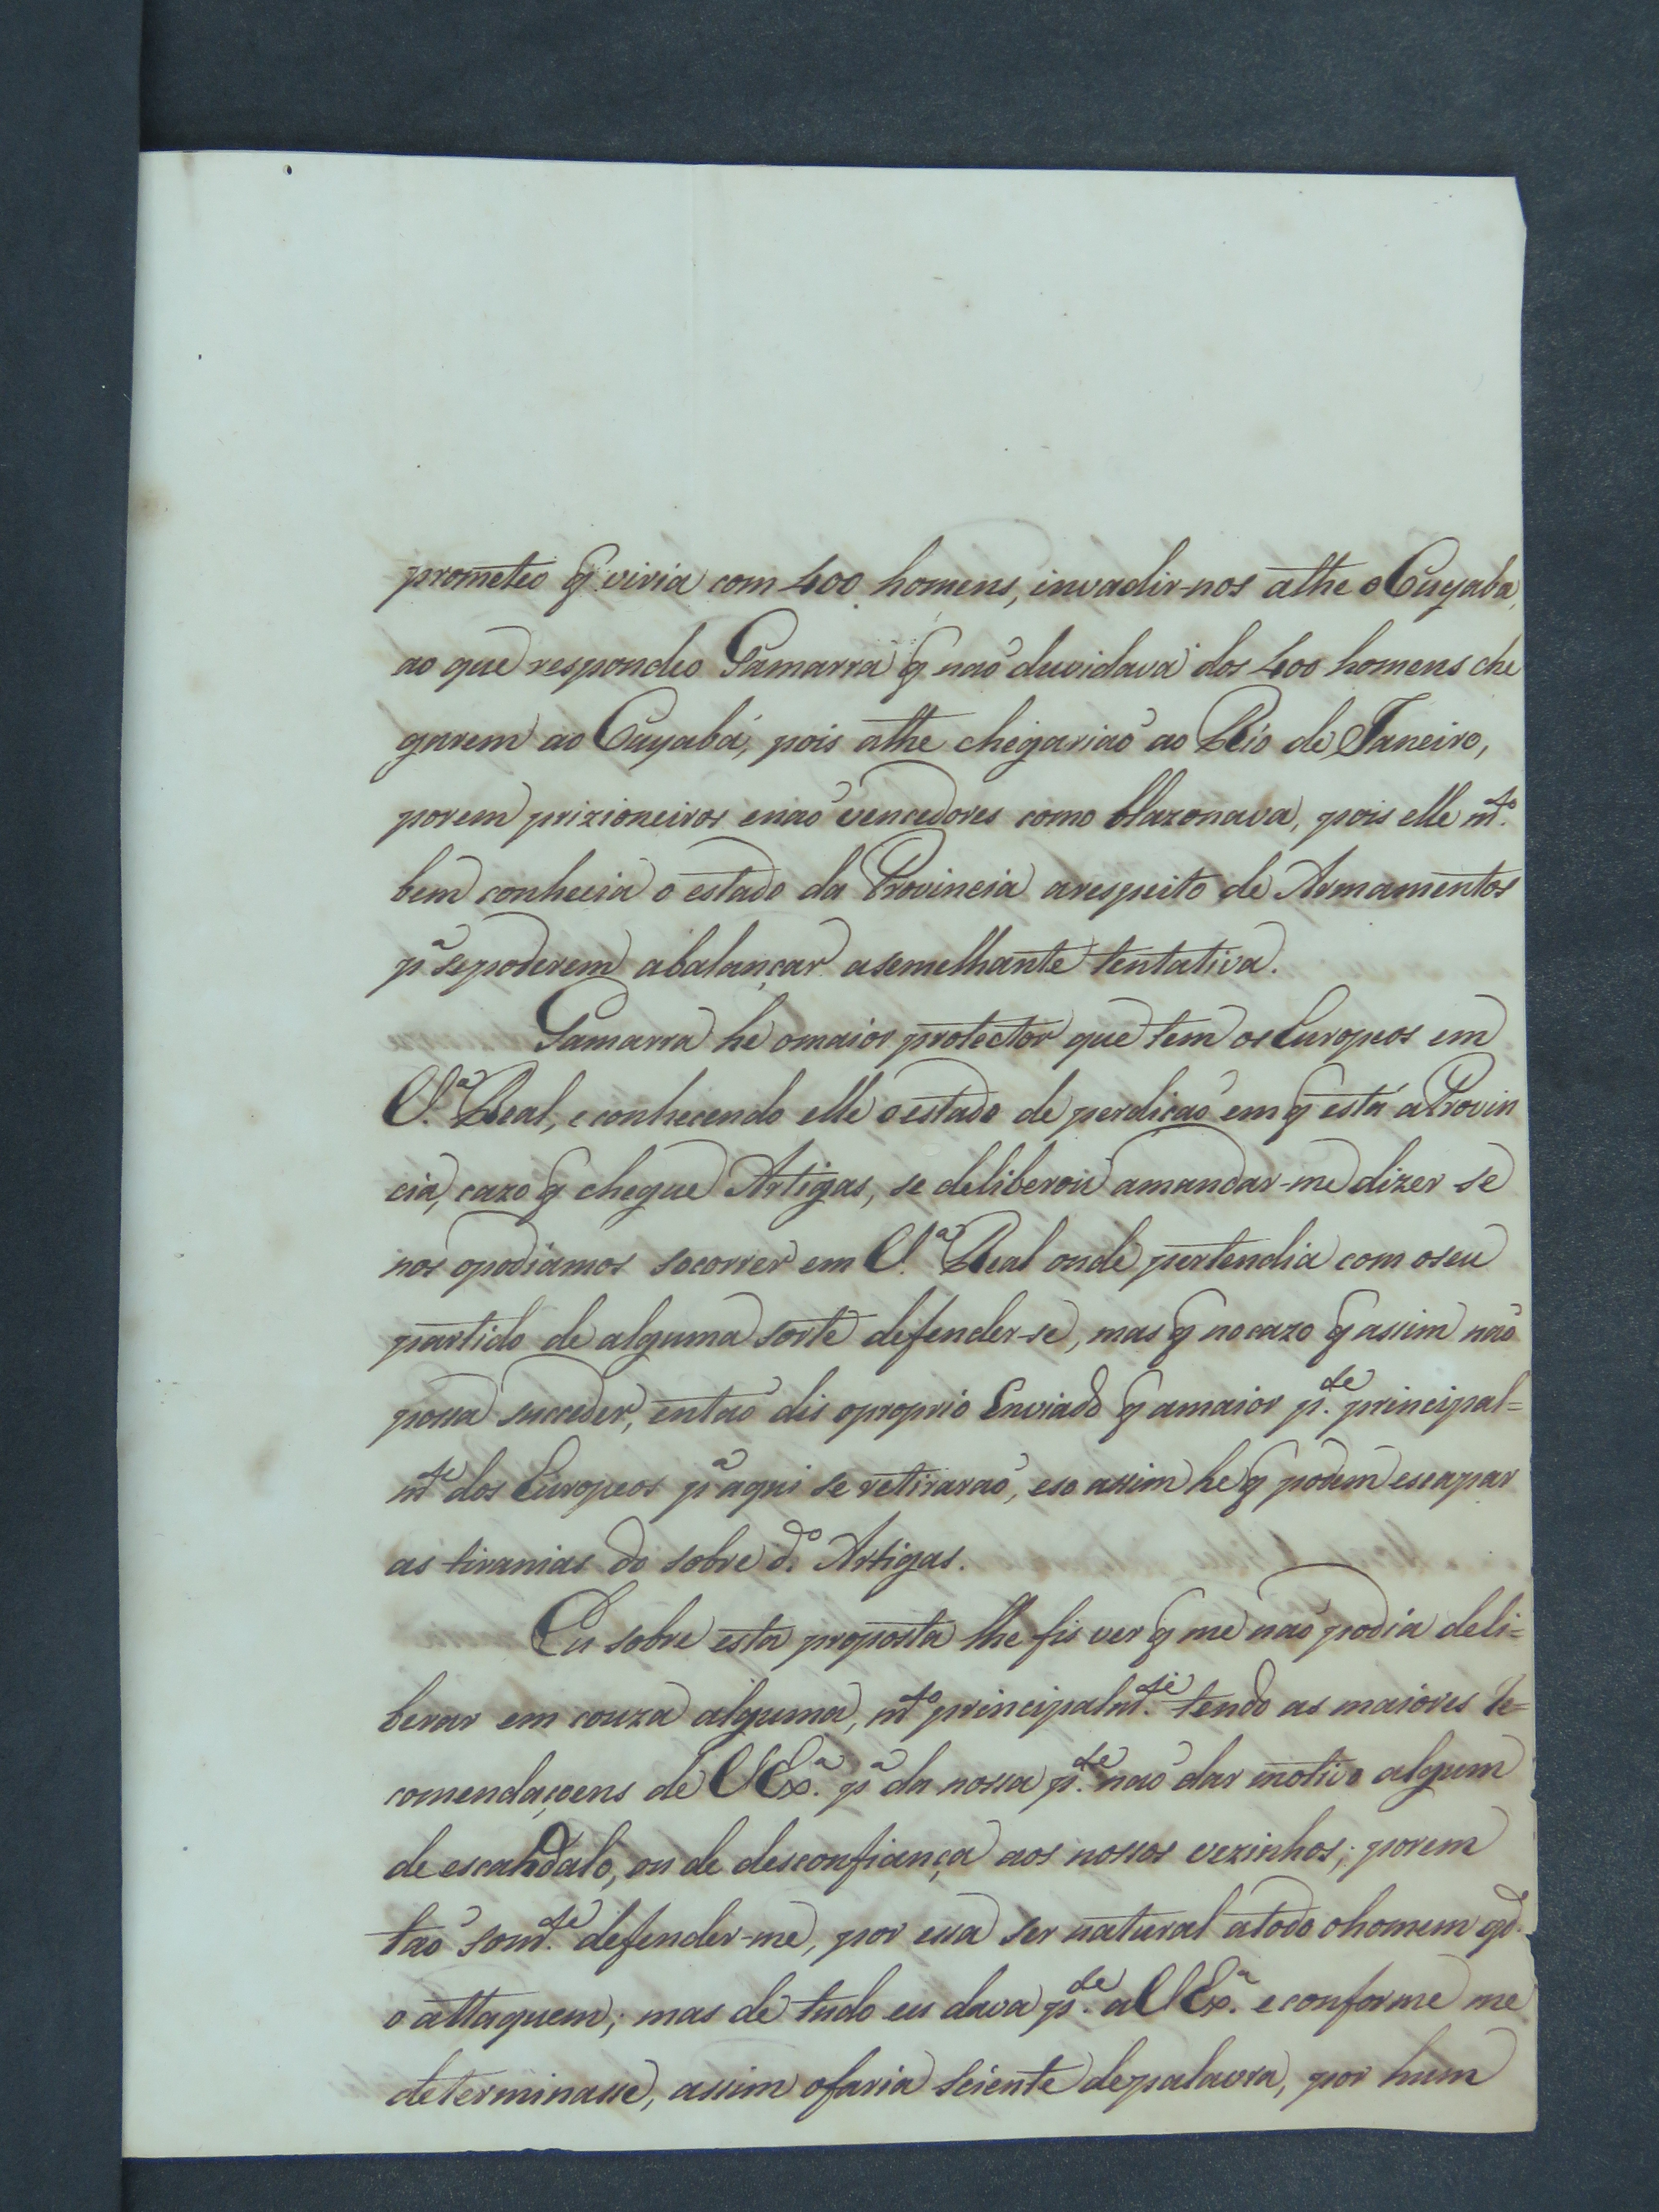 prometeo q̃ viria com 400 homens, invadir-nos athe o Cuyabá,
ao que respondeo Gamarra q̃ naõ duvidava dos 400 homens che
garem ao Cuyabá, pois athe chegariaõ ao Rio de Janeiro,
porem prizioneiros enaõ vencedores como blazonava, pois elle m.to
bem conhecia o estado da Provincia arespeito de Armamentos
p.a sepoderem abalançar asemelhante tentativa.
Gamarra he omaior protector que tem os Europeos em
V.a Real, e conhecendo elle oestado de perdicaõ em q̃ está aProvin
cia, cazo q̃ chegue Artigas, se deliberou amandar-me dizer se
nos opodiamos socorrer em V.a Real onde pertendia com oseu
partido de alguma sorte defender-se, mas q̃ nocazo q̃ assim naõ
possa succeder, entaõ dis oproprio Enviado q̃ amaior p.te principal=
m.te dos Europeos p.a aqui se retiraraõ, eso assim he q̃ podem escapar
as tiranias do sobre d.o Artigas.
Eu sobre esta proposta lhe fis ver q̃ me naõ podia deli=
berar em couza alguma, m.to principalm.te tendo as maiores Re=
comendaçoens de V Ex.a p.a da nossa p.te naõ dar motivo algum
de escandalo, ou de desconfiança aos nossos vezinhos; porem
taõ som.te defender-me, por essa ser natural atodo ohomem qd.o
o attaquem; mas de tudo eu dava p.te aV Ex.a e conforme me
determinasse, assim ofaria sciente depalavra, por hum